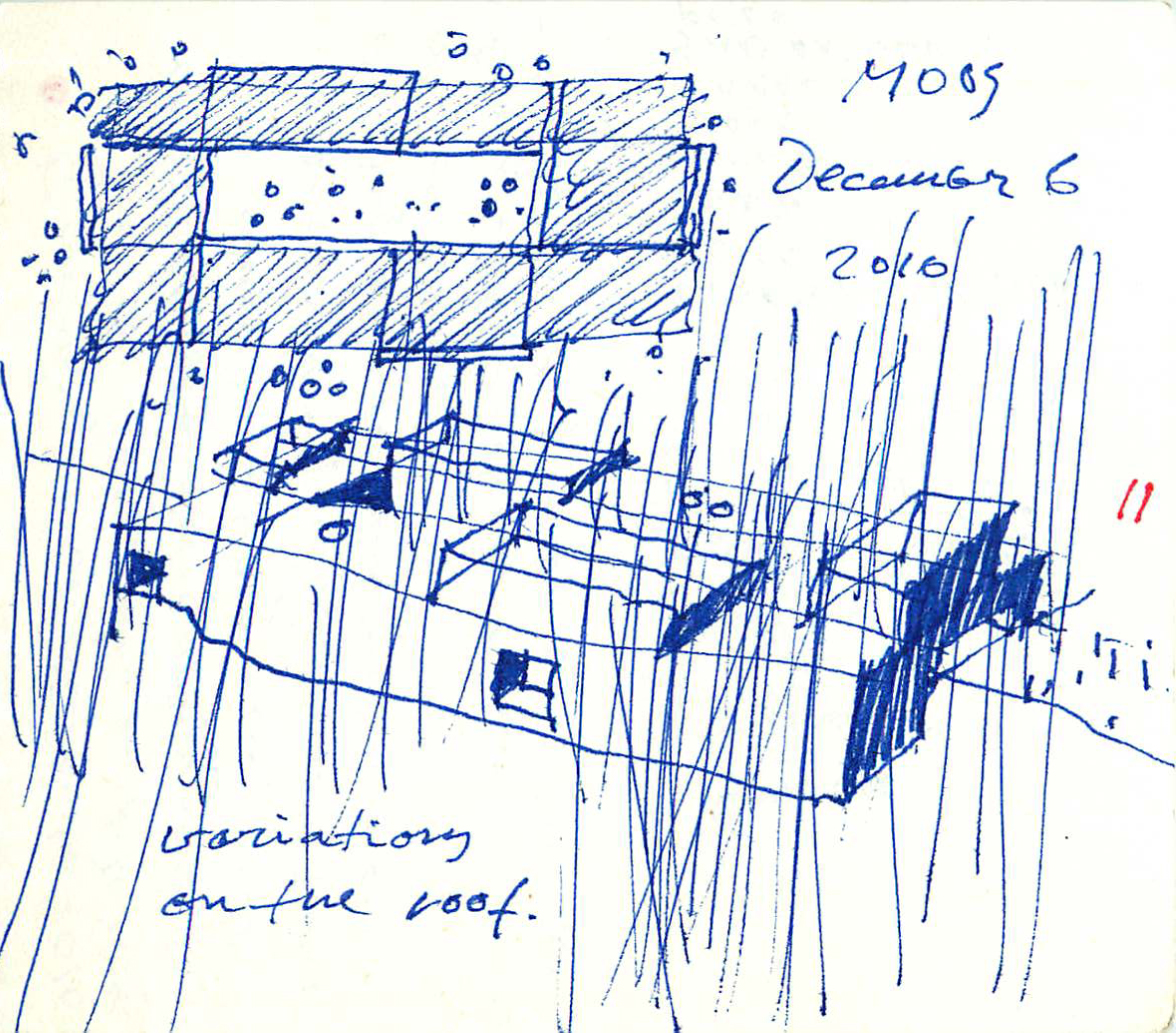 MOOS
December 6
2010
11
variations
on the roof.